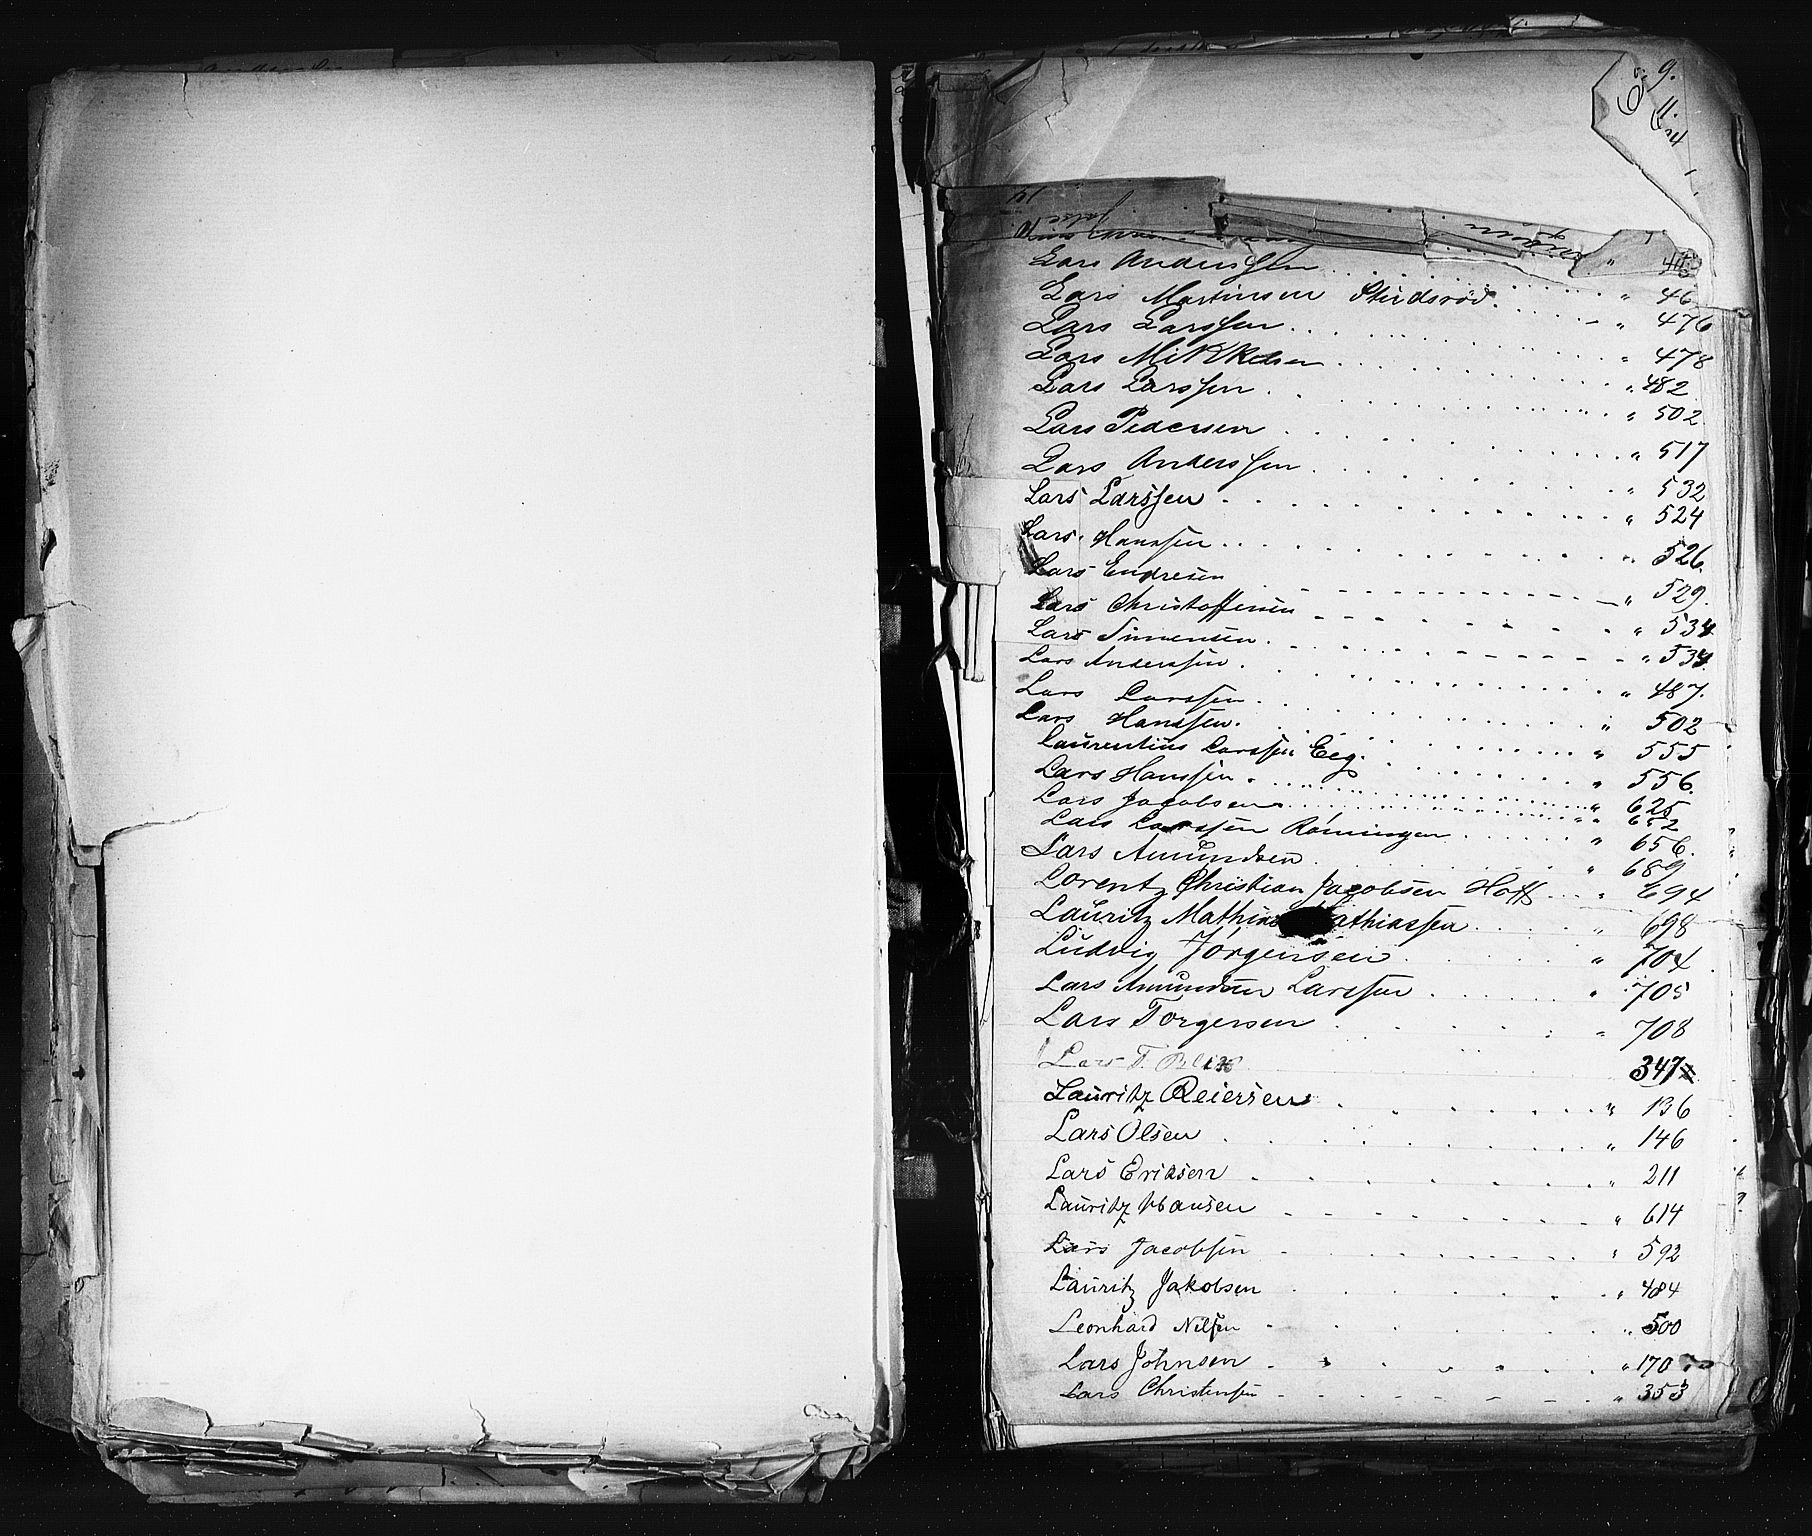 Lars Anderssen . . . " 
Lars Martinsen Studsrød . . . " 46
Lars Larssen . . . " 476
Lars Mikkelsen . . . " 478
Lars Larssen . . . " 482
Lars Pedersen . . . " 502
Lars Anderssen . . . " 517
Lars Larssen . . . " 532
Lars Hanssen . . . " 524
Lars Endresen . . . " 526
Lars Christoffersen . . . " 529
Lars Simensen . . . " 534
Lars Anderssen . . . " 534
Lars Larssen . . . " 487
Lars Hanssen . . . " 502
Laurentius Larssen Eeg . . . " 555
Lars Hanssen . . . " 556
Lars Jacobsen . . . " 625
Lars Larssen Rönningen . . . " 652
Lars Amundsen . . . " 656
689
Lorentz Christian Jacobsen Hoff . . . " 694
Lauritz Mathias Mathiassen . . . " 698
Ludvig Jörgensen . . . " 704
Lars Amundsen Larssen . . . " 705
Lars Torgersen . . . " 708
Lars T. Blix 347
Lauritz Reiersen . . . " 136
Lars Olsen . . . " 146
Lars Eriksen . . . " 211
Lauritz Hansen . . . " 614
Lars Jacobsen . . . " 592
Lauritz Jakobsen . . . " 484
Leonhard Nilsen . . . " 500
Lars Johnsen . . . " 170
Lars Christensen . . . " 353